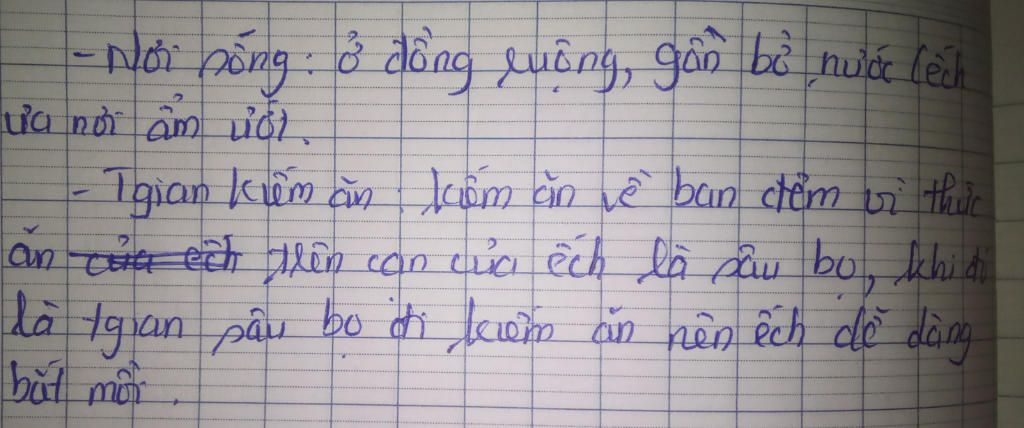 - Nơi sống: ở đồng ruộng, gần bờ nước (ếch
ưa nơi ẩm ướt).
- Tgian kiếm ăn: kiếm ăn về ban đêm vì thức
ăn của ếch trên cạn của ếch là sâu bọ, khi đó
là tgian sâu bọ đi kiếm ăn nên ếch dễ dàng
bắt mồi.